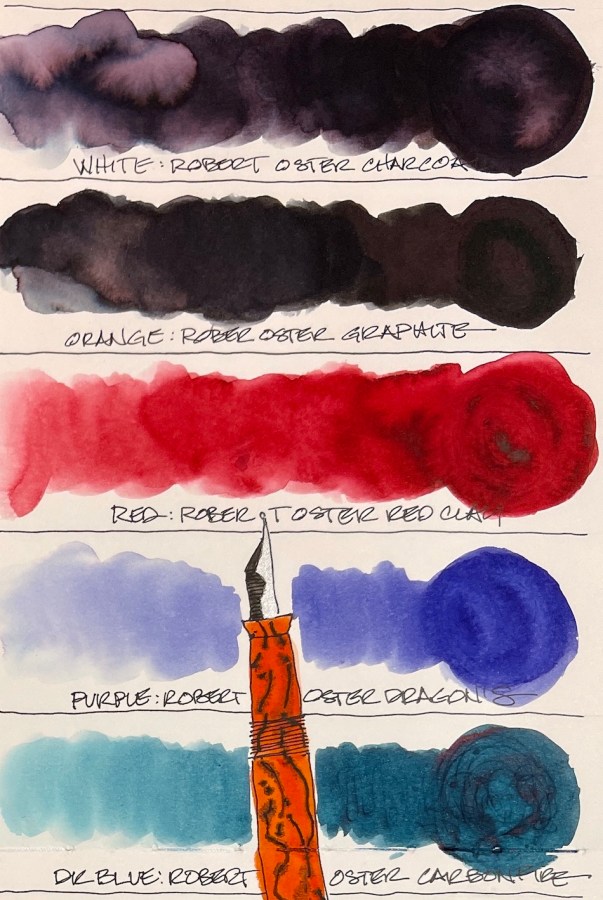 WHITE: ROBERT OSTER CHARCOA
ORANGE: ROBER OSTER GRAPHITE
RED: ROBERT OSTER RED CLAY
PURPLE: ROBERT OSTER DRAGON'S
DK BLUE: ROBERT OSTER CARBON FIRE